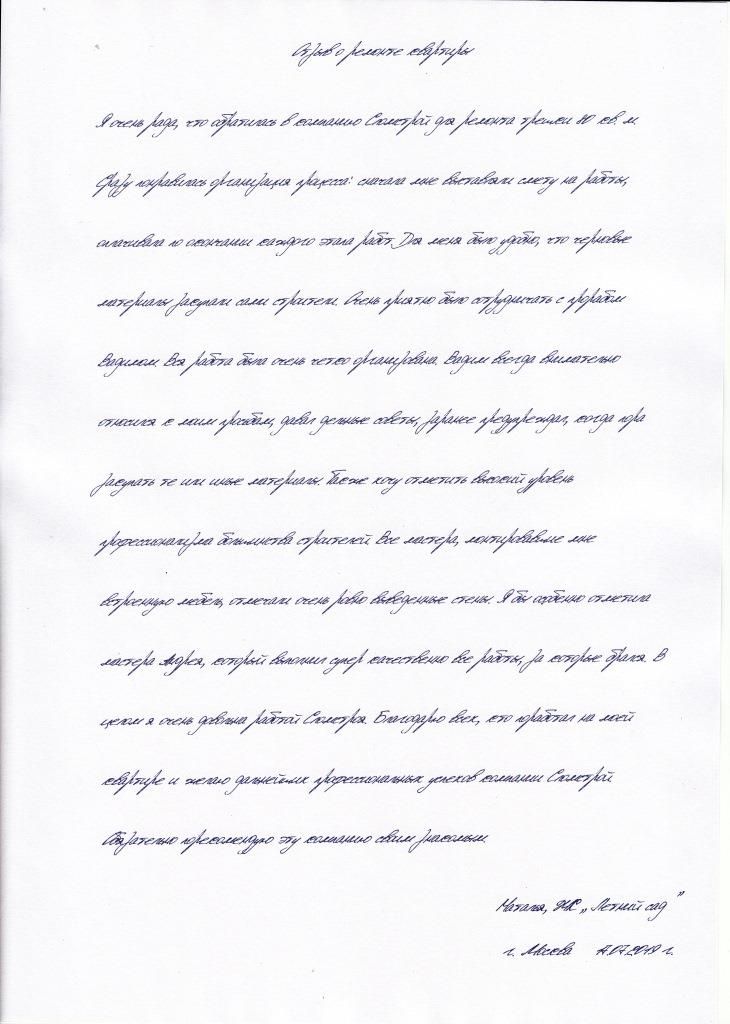 Отзыв о ремонте квартиры
Я очень рада, что обратилась в компанию Сюмстрой для ремонта трешки 80 кв. м.
Сразу понравилась организация процесса: сначала мне выставляли смету на работы,
оплачивала по окончании каждого этапа работ. Для меня было удобно, что черновые
материалы закупали сами строители. Очень приятно было сотрудничать с прорабом
Вадимом. Вся работа была очень четко организована. Вадим всегда внимательно
относился к моим просьбам, давал дельные советы, заранее предупреждал, когда пора
закупать те или иные материалы. Также хочу отметить высокий уровень
профессионализма большинства строителей. Все мастера, монтировавшие мне
встроенную мебель, отмечали очень ровно выведенные стены. Я бы особенно отметила
мастера Андрея, который выполнил супер качественно все работы, за которые брался. В
целом я очень довольна работой Сюмстроя. Благодарю всех, кто поработал на моей
квартире и желаю дальнейших профессиональных успехов компании Сюмстрой
Обязательно порекомендую эту компанию своим знакомым.
Наталья, ЖК „Летний сад"
г. Москва 17.07.2019 г.